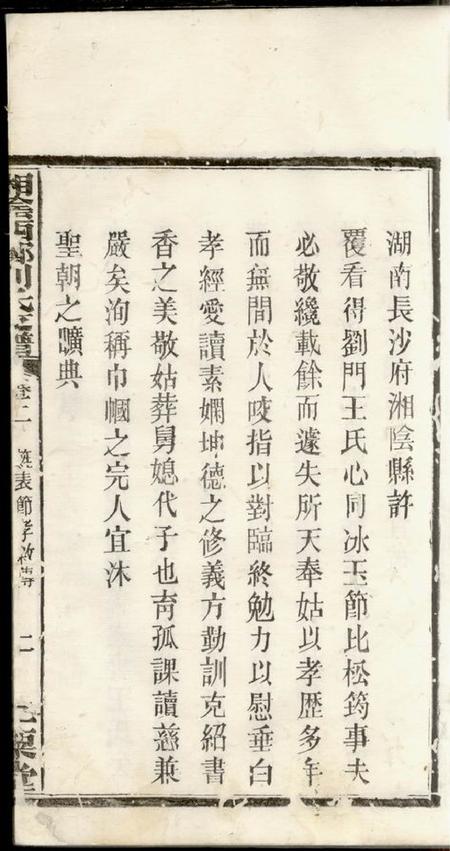 湖南長沙府湘陰縣許
覆看得劉門王氏心同冰玉節比松筠事夫
必敬纔載餘而遽失所天奉姑以孝歷多年
而無間於人咬指以對臨終勉力以慰垂白
孝經愛讀素嫻坤德之修義方勤訓克紹書
香之美敬姑葬舅媳代子也育孤課讀慈兼
嚴矣洵稱巾幗之完人宜沐
聖朝之曠典
卷二
旌表節孝
二